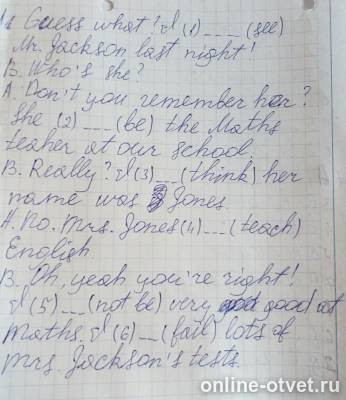 A. Guess what? I (1) ___ (see)
Mr. Jackson last night!
B. Who's she?
A. Don't you remember her?
She (2) __ (be) the Maths
teaher at our school
B. Really? I (3) ___ (think) her
name was Jones
A. No. Mrs. Jones (4) __ (teach)
English.
B. Oh, yeah you're right!
I (5) ___ (not be) very good at
Maths. I (6) _ (fail) lots of
Mrs. Jackson's tests.
online-otvet.ru